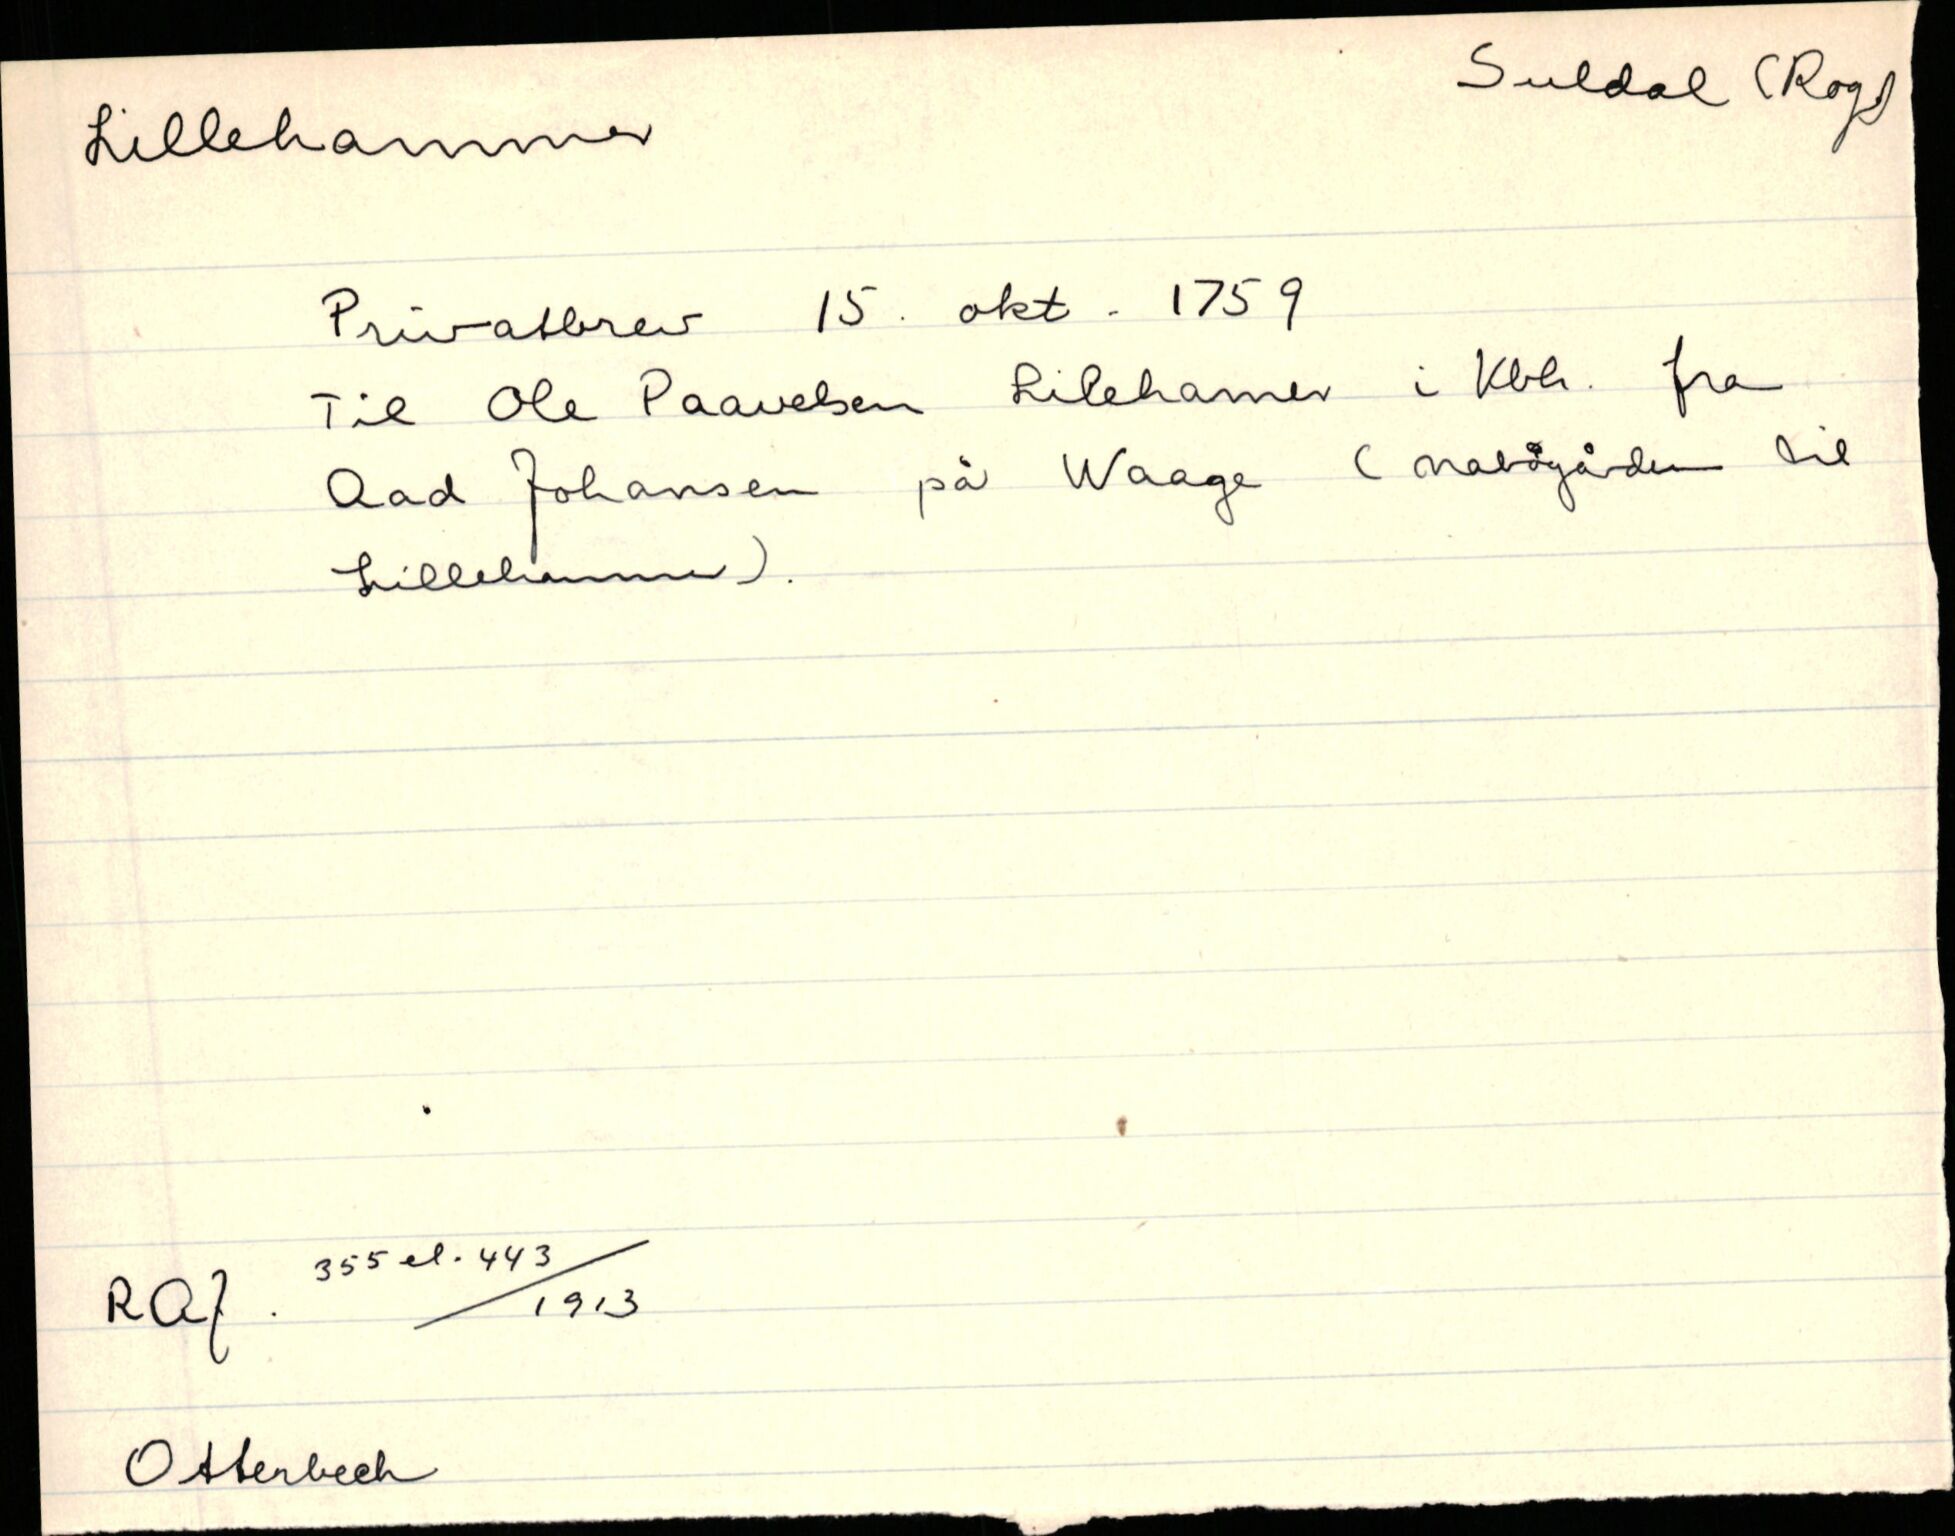 Suldal (Rog)
Lillehammer
Privatbrev 15. okt. 1759
Til Ole Paavelsen Lilehamer i Kbh. fra
Aad Johansen på Waage (nabogården til
Lillehammer).
RAJ. 355 el. 443/1913
Otterbech